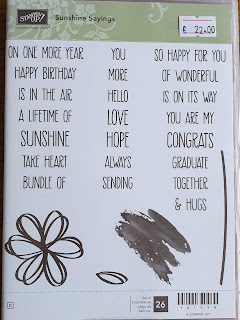 STAMPIN' UP!
Sunshine Sayings
£ 22.00
ON ONE MORE YEAR YOU SO HAPPY FOR YOU
HAPPY BIRTHDAY MORE OF WONDERFUL
IS IN THE AIR HELLO IS ON ITS WAY
A LIFETIME OF LOVE YOU ARE MY
SUNSHINE HOPE CONGRATS
TAKE HEART ALWAYS GRADUATE
BUNDLE OF SENDING TOGETHER
& HUGS
Set of
26
© STAMPIN' UP!